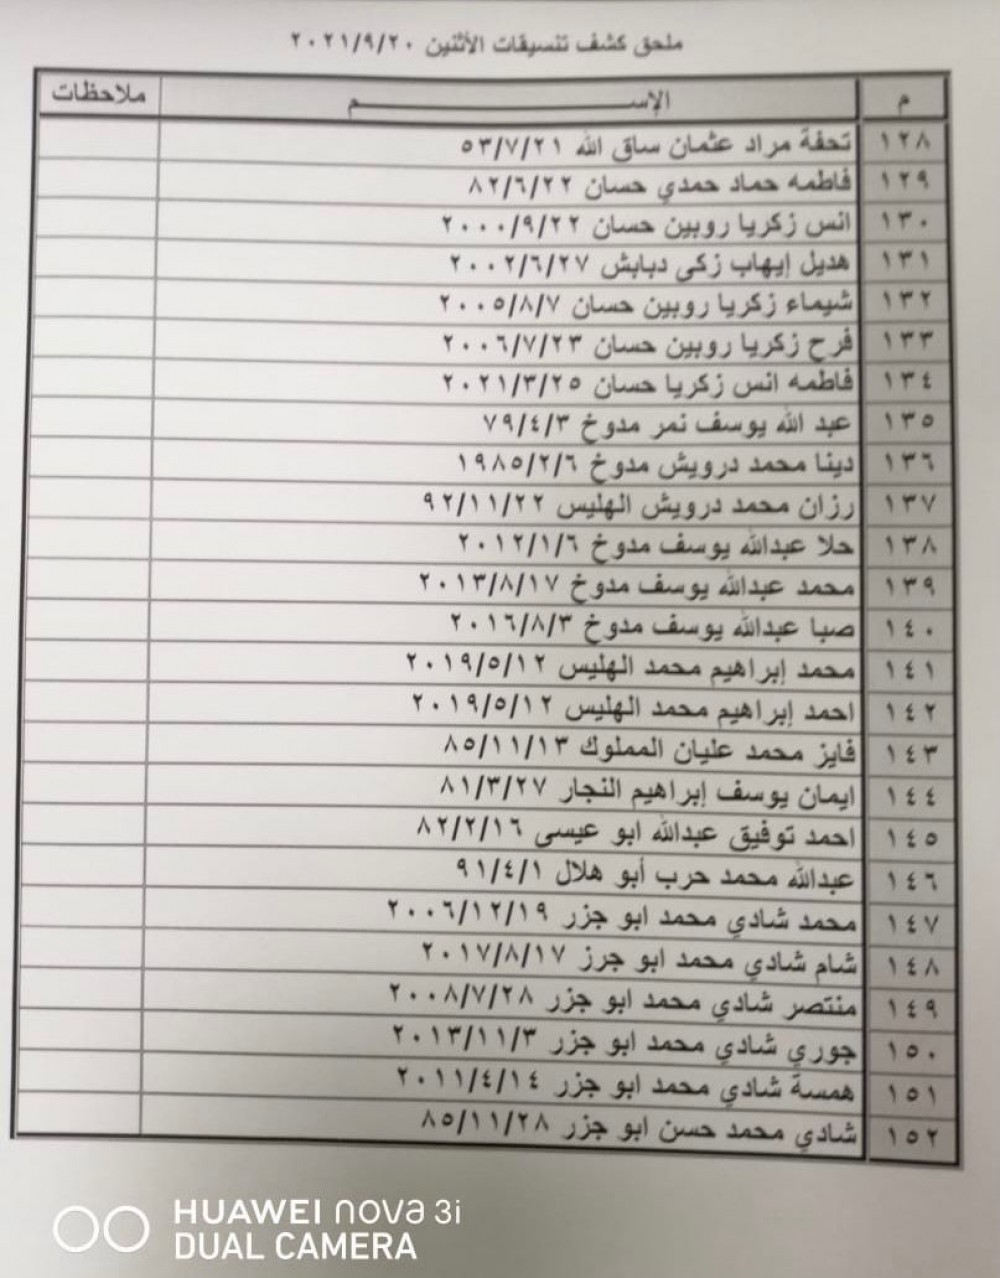 ملحق كشف تنسيقات الأثنين ٢٠٢١/٩/٢٠
م الإســـــــــــــــم ملاحظات
١٢٨ تحفة مراد عثمان ساق الله ٥٣/٧/٢١
١٢٩ فاطمه حماد حمدي حسان ٨٢/٦/٢٢
١٣٠ انس زكريا روبين حسان ٢٠٠٠/٩/٢٢
١٣١ هديل إيهاب زكى دبابش ٢٠٠٢/٦/٢٧
١٣٢ شيماء زكريا روبين حسان ٢٠٠٥/٨/٧
١٣٣ فرح زكريا روبين حسان ٢٠٠٦/٧/٢٣
١٣٤ فاطمه انس زكريا حسان ٢٠٢١/٣/٢٥
١٣٥ عبد الله يوسف نمر مدوخ ٧٩/٤/٣
١٣٦ دينا محمد درويش مدوخ ١٩٨٥/٢/٦
١٣٧ رزان محمد درويش الهليس ٩٢/١١/٢٢
١٣٨ حلا عبدالله يوسف مدوخ ٢٠١٢/١/٦
١٣٩ محمد عبدالله يوسف مدوخ ٢٠١٣/٨/١٧
١٤٠ صبا عبدالله يوسف مدوخ ٢٠١٦/٨/٣
١٤١ محمد إبراهيم محمد الهليس ٢٠١٩/٥/١٢
١٤٢ احمد إبراهيم محمد الهليس ٢٠١٩/٥/١٢
١٤٣ فايز محمد عليان المملوك ٨٥/١١/١٣
١٤٤ ايمان يوسف إبراهيم النجار ٨١/٣/٢٧
١٤٥ احمد توفيق عبدالله ابو عيسى ٨٢/٢/١٦
١٤٦ عبدالله محمد حرب أبو هلال ٩١/٤/١
١٤٧ محمد شادي محمد ابو جزر ٢٠٠٦/١٢/١٩
١٤٨ شام شادي محمد ابو جرز ٢٠١٧/٨/١٧
١٤٩ منتصر شادي محمد ابو جزر ٢٠٠٨/٧/٢٨
١٥٠ جوري شادي محمد ابو جزر ٢٠١٣/١١/٣
١٥١ همسة شادي محمد ابو جزر ٢٠١١/٤/١٤
١٥٢ شادي محمد حسن ابو جزر ٨٥/١١/٢٨
HUAWEI nova 3i
DUAL CAMERA